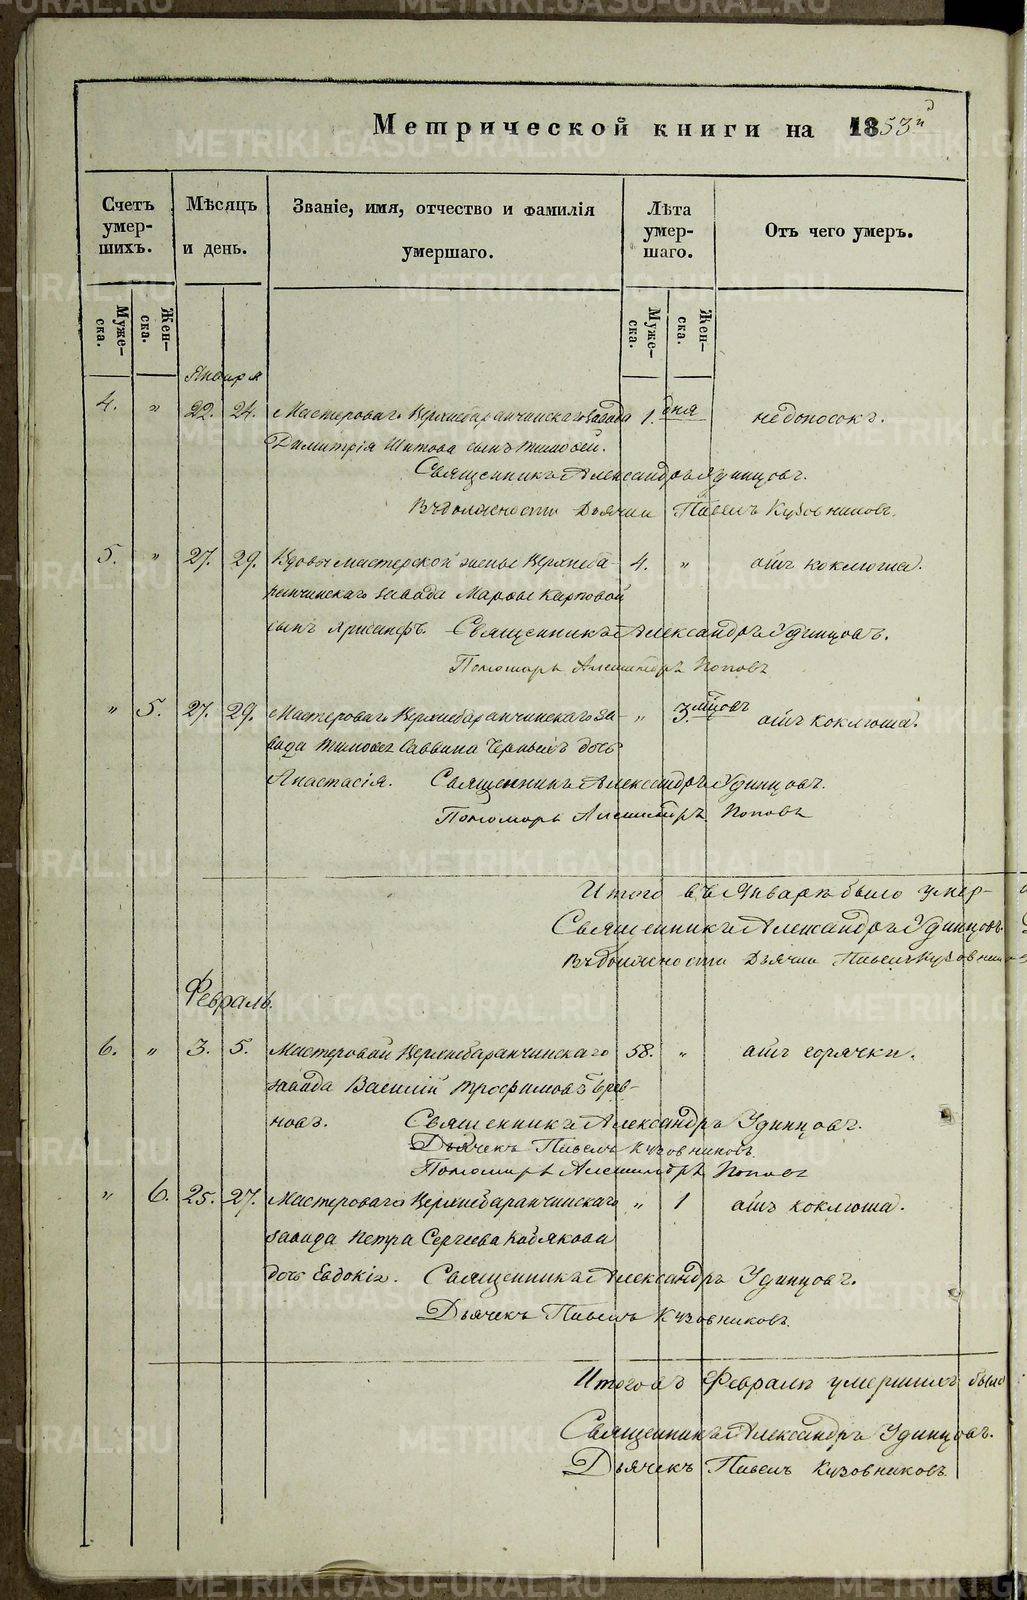 Метрической книги на 1853й д
Счетъ умер-шихъ.
Мѣсяцъ и день.
Званіе, имя, отчество и фамилія умершаго.
Лѣта умер-шаго.
Отъ чего умеръ.
Муже-ска.
Жен-ска.
Муже-ска.
Жен-ска.
Января
4. „ 22. 24. Мастероваго Верхнебаранчинскаго завода 1. дня недоносокъ.
Димитрія Шитова сынъ Тимофей.
Священникъ Александръ Удинцовъ.
Въ должности Дьячка Павелъ Кузовниковъ.
5. „ 27. 29. Вдовы мастерской жены Верхнеба- 4. „ отъ коклюша.
ранчинскаго завода Марфы Карповой
сынъ Хрисанфъ. Священникъ Александръ Удинцовъ.
Пономарь Александръ Поповъ
„ 5. 27. 29. Мастероваго Верхнебаранчинскаго за- „ 3. мѣсцовъ отъ коклюша.
вода Тимофея Саввина дочь
Анастасія. Священникъ Александръ Удинцовъ.
Пономарь Александръ Поповъ
Итого въ Январѣ было умер-
Священникъ Александръ Удинцовъ.
Въ должности Дьячка Павелъ Кузовник
Февраль.
6. „ 3. 5. Мастеровой Верхнебаранчинскаго 58. „ отъ горячки.
завода Василій Трофимовъ Брев-
новъ. Священникъ Александръ Удинцовъ.
Дьячекъ Павелъ Кузовниковъ.
Пономарь Александръ Поповъ
„ 6. 25. 27. Мастероваго Верхнебаранчинскаго „ 1 отъ коклюша.
завода Петра Сергеева Кобякова
дочь Евдокія. Священникъ Александръ Удинцовъ.
Дьячекъ Павелъ Кузовниковъ.
Итого въ Февралѣ умершихъ было
Священникъ Александръ Удинцовъ.
Дьячекъ Павелъ Кузовниковъ.
METRIKI.GASO-URAL.RU